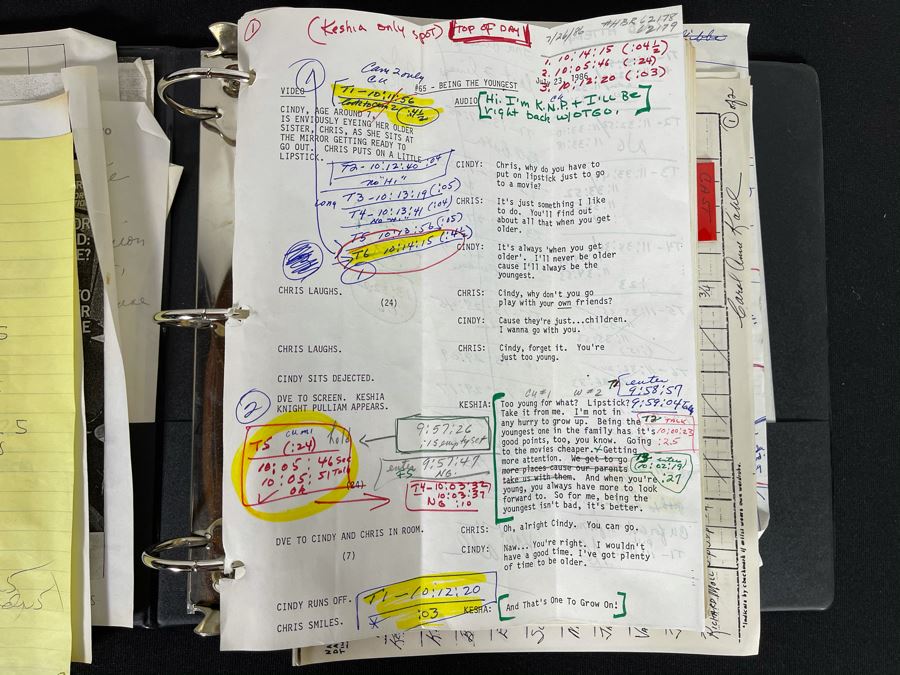 1
(Keshia only spot) TOP OF DAY
7/26/86
#HBR62178
62179
1. 10:14:15 (:04½)
2. 10:05:46 (:24)
3. 10:12:20 (:03)
Cam 2 only
CU
VIDEO
T1-10:11:56
:4½
#65 - BEING THE YOUNGEST
July 23, 1986
AUDIO
[Hi. I'm K.N.P. + I'll Be
right back w/OTGO.]
CINDY, AGE AROUND 7,
IS ENVIOUSLY EYEING HER OLDER
SISTER, CHRIS, AS SHE SITS AT
THE MIRROR GETTING READY TO
GO OUT. CHRIS PUTS ON A LITTLE
LIPSTICK.
T2-10:12:40 :04
no "Hi"
Long T3-10:13:19 (:05)
T4-10:13:41 (:04)
T5 10:13:56 (:05)
T6 10:14:15 (:4½)
1
CINDY: Chris, why do you have to
put on lipstick just to go
to a movie?
CHRIS: It's just something I like
to do. You'll find out
about all that when you get
older.
CINDY: It's always 'when you get
older'. I'll never be older
cause I'll always be the
youngest.
CHRIS LAUGHS.
(24)
CHRIS: Cindy, why don't you go
play with your own friends?
CINDY: Cause they're just...children.
I wanna go with you.
CHRIS LAUGHS.
CHRIS: Cindy, forget it. You're
just too young.
CINDY SITS DEJECTED.
DVE TO SCREEN. KESHIA
KNIGHT PULLIAM APPEARS.
2
CU #1 W #2
enter
9:58:57
9:59:04
KESHIA: Too young for what? Lipstick?
Take it from me. I'm not in
any hurry to grow up. Being the
youngest one in the family has it's
good points, too, you know. Going
to the movies cheaper. + Getting
more attention. We get to go
more places cause our parents
take us with them. And when you're
young, you always have more to look
forward to. So for me, being the
youngest isn't bad, it's better.
T2 TALK
10:00:23
:25
T3 enter
(10:02:19)
:27
T5 (:24) hold
10:05:46
10:05:51 Talk
ok
(24)
9:57:26
:15 empty set
9:57:47
NG.
T4-10:03:32
10:03:37
NG :10
CHRIS: Oh, alright Cindy. You can go.
DVE TO CINDY AND CHRIS IN ROOM.
(7)
CINDY: Naw... You're right. I wouldn't
have a good time. I've got plenty
of time to be older.
CINDY RUNS OFF.
CHRIS SMILES.
T1-10:12:20
* :03
KESHIA: [And That's One To Grow On!]
CAST
34
1 of 2
Carol Ann Kahl
Richard Moll
*Indicate by checkmark if artist wears own wardrobe.